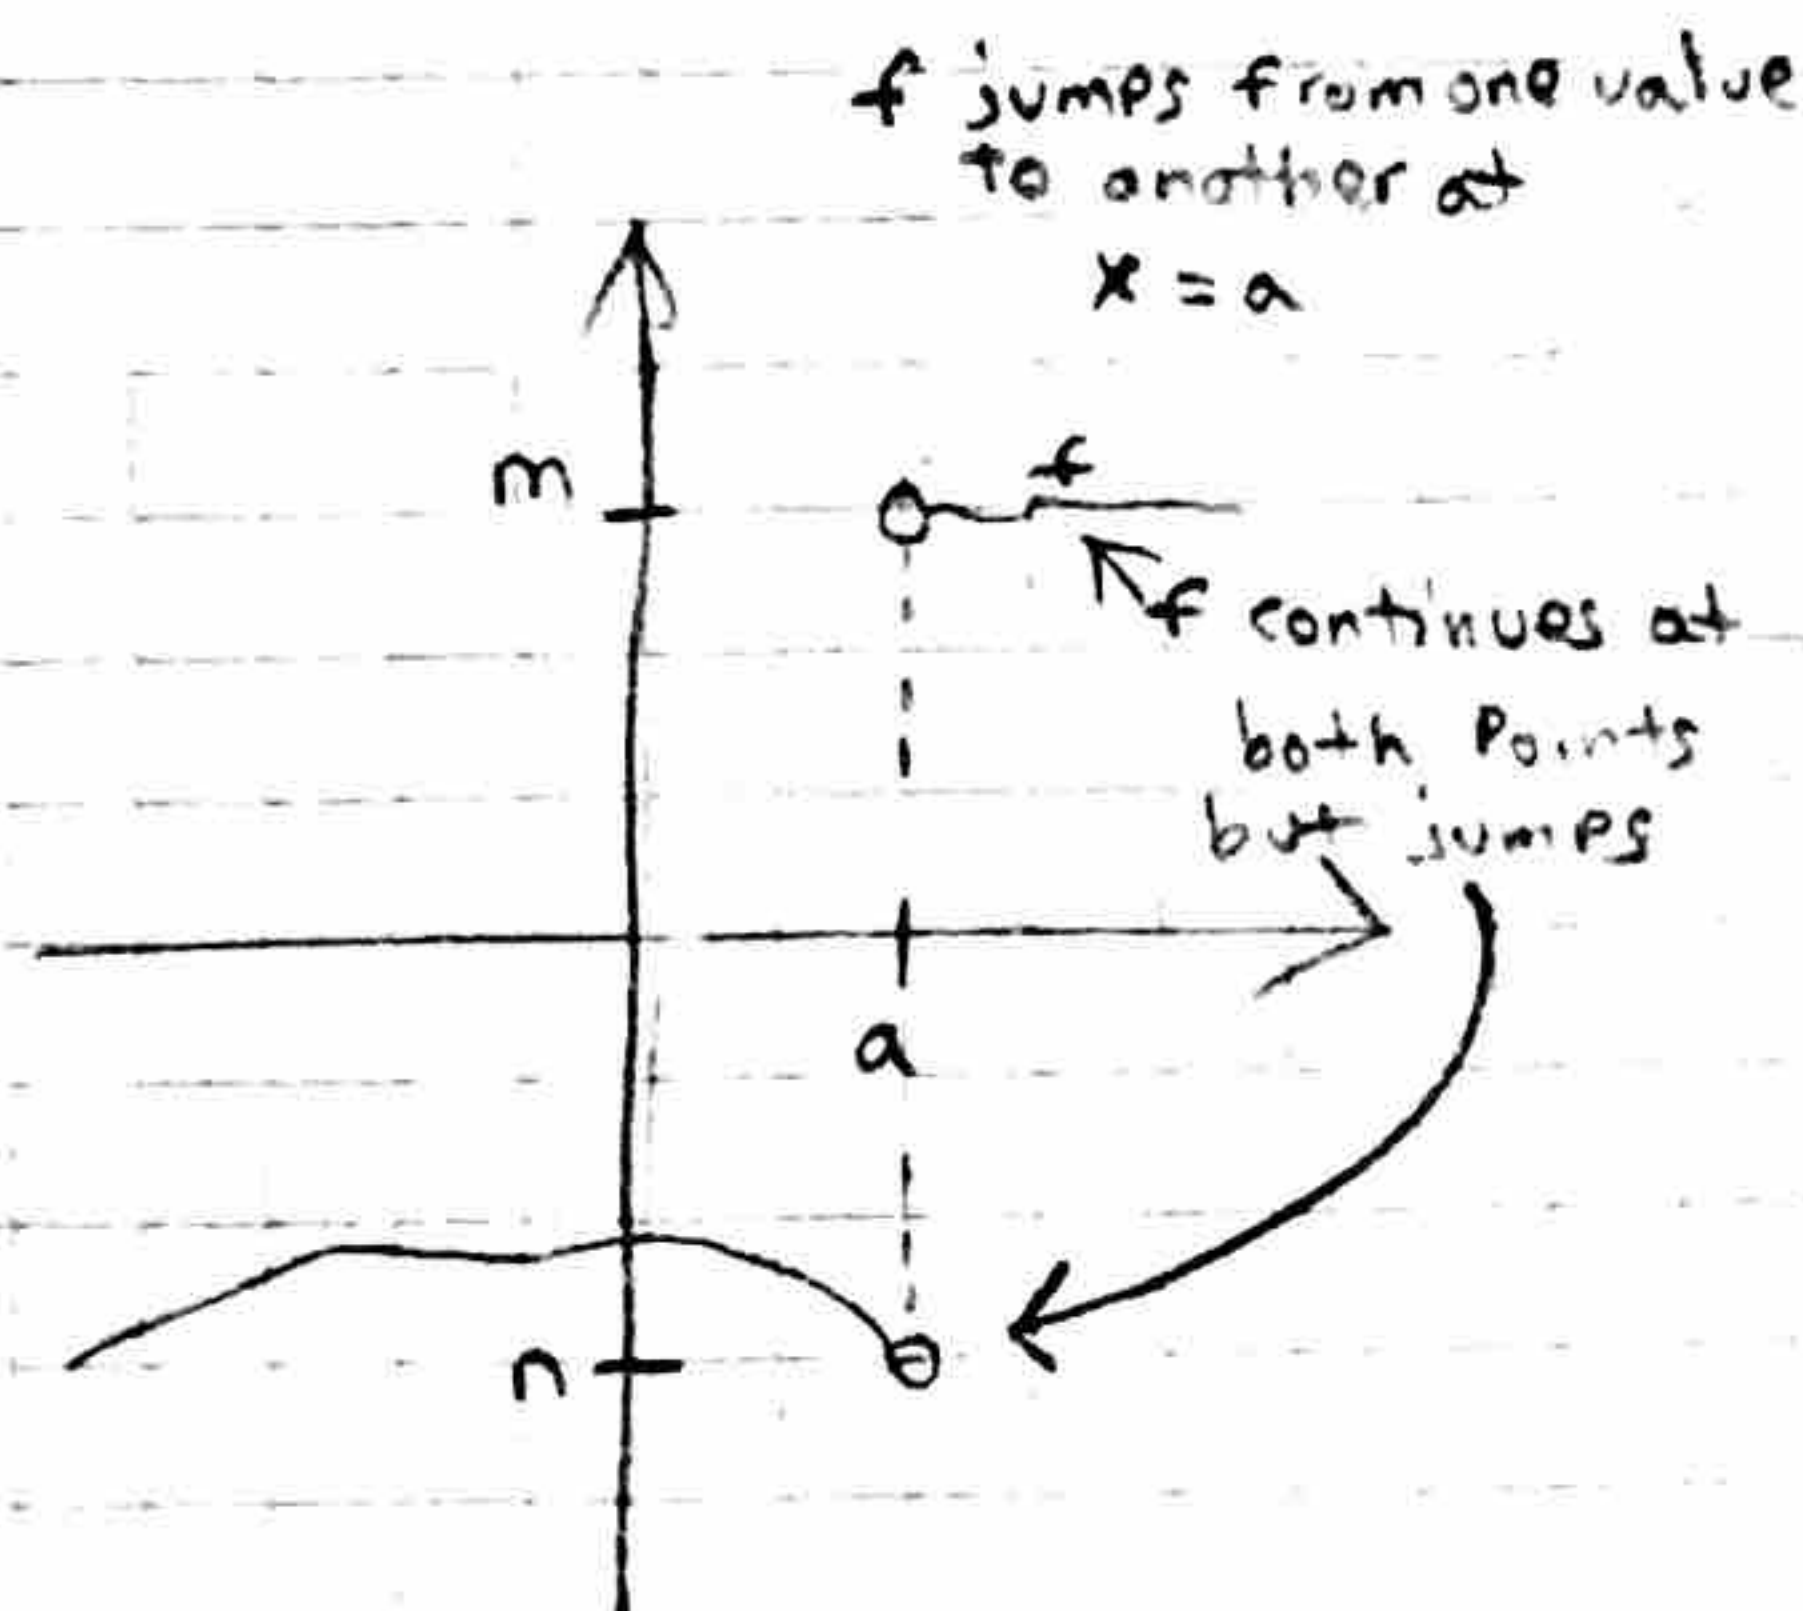 f jumps from one value
to another at
x = a
m
f
f continues at
both points
but jumps
a
n